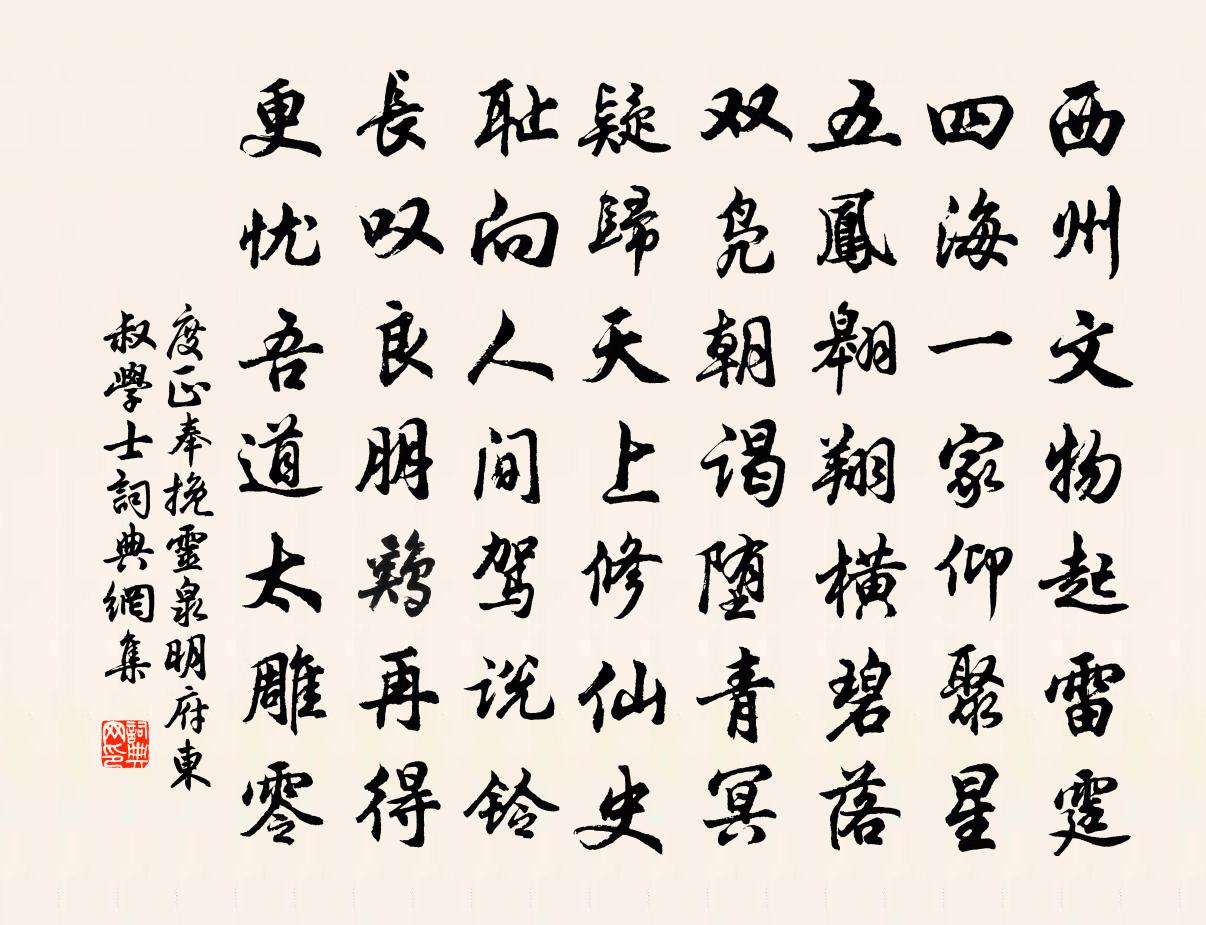 西州文物起雷霆
四海一家仰聚星
五鳳翱翔橫碧落
双凫朝谒堕青冥
疑歸天上修仙史
耻向人间驾说铃
長叹良朋難再得
更忧吾道太雕零
度正奉挽靈泉明府東
叔學士詞典網集
詞典
网印